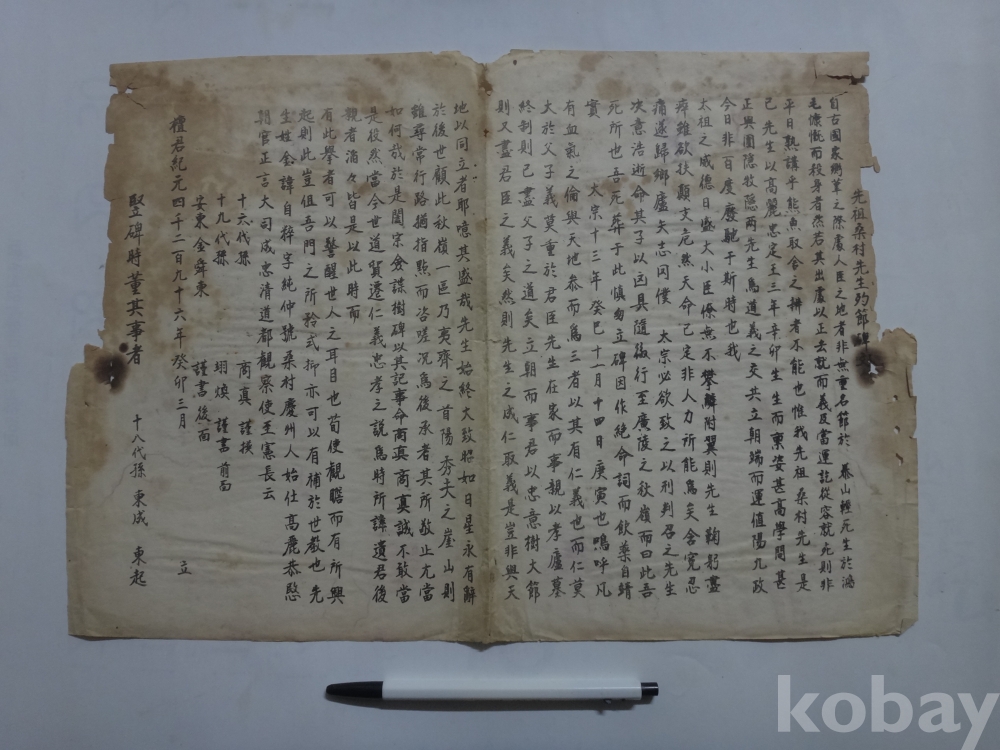 先祖桑村先生効節碑
自古國家衂革之際處人臣之地者非無重名節於 泰山輕死生於鴻
毛慷慨而殺身者然若其出處以正去就而義及當運訖從容就死則非
平日熟講乎熊魚取舍之辨者不能也惟我先祖桑村先生是
已 先生以高麗忠定王三年辛卯生生而稟姿甚高學問甚
正與圃隱牧隱兩先生爲道義之交共立朝端而運值陽九政
今日非百度廢馳于斯時也我
太祖之威德日盛大小臣僚無不攀鱗附翼則先生鞠躬盡
瘁雖欲扶顚支危然天命已定非人力所能爲矣含寃忍
痛遂歸鄕廬矢志罔僕 太宗必欲致之以刑判召之先生
决意浩逝命其子以凶具隨後行至廣陵之秋嶺而曰此吾
死所也吾死葬于此愼勿立碑因作絶命詞而飮藥自靖
實 太宗十三年癸巳十一月十四日庚寅也嗚呼凡
有血氣之倫與天地叅而爲三者以其有仁義也而仁莫
大於父子義莫重於君臣先生在家而事親以孝廬墓
終制則已盡父子之道矣立朝而事君以忠意樹大節
則又盡君臣之義矣然則先生之成仁取義是豈非與天
地以同立者耶噫其盛哉先生始終大致昭如日星永有辭
於後世顧此秋嶺一區乃夷齊之首陽秀夫之崖山則
雖尋常行路猶指點而咨嗟况爲後承者其所敬止尤當
如何哉於是闔宗僉謀樹碑以其記事命商眞商眞誠不敢當
是役然當今世道貿遷仁義忠孝之說爲時所諱遺君後
親者滔々皆是以此時而
有此擧者可以警醒世人之耳目也苟使觀瞻而有所興
起則此豈徂吾門之所矜式抑亦可以有補於世敎也先
生姓金諱自粹字純仲號桑村慶州人始仕高麗恭愍
朝官正言大司成忠淸道都觀察使至憲長云
十六代孫 商眞 謹撰
十九代孫 翊煥 謹書前面
安東金舜東 謹書後面
檀君紀元四千二百九十六年癸卯三月 立
竪碑時董其事者 十八代孫 東成 東起
kobay